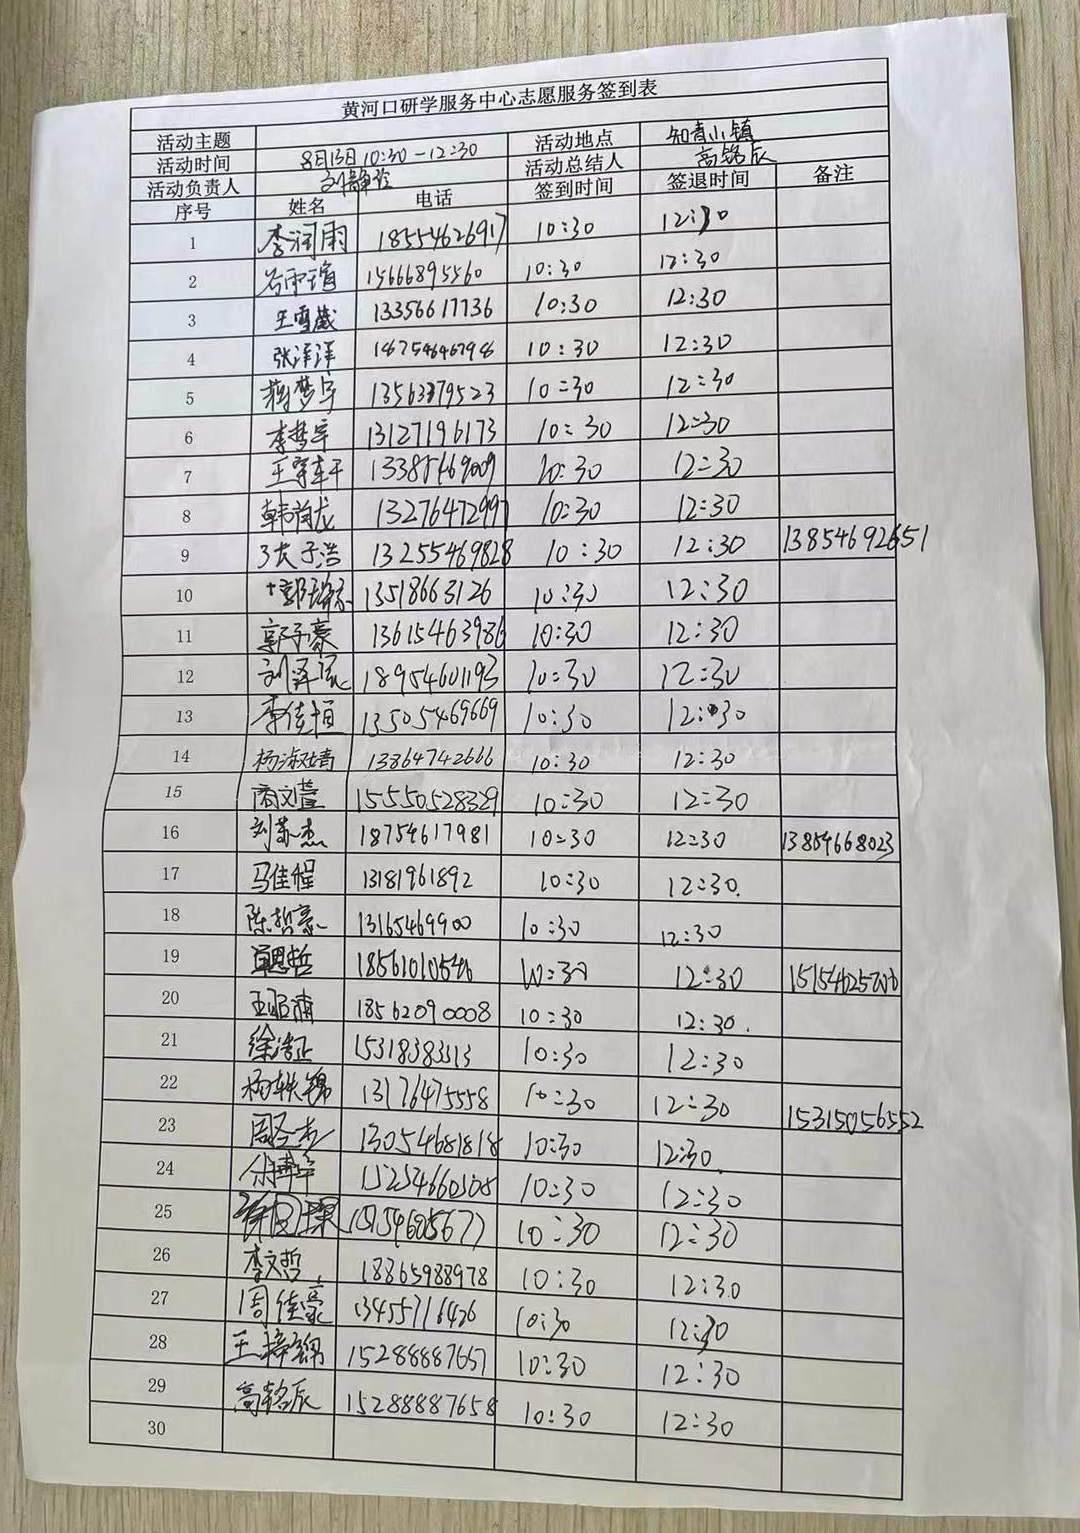 黄河口研学服务中心志愿服务签到表
活动主题 活动地点 知青小镇
活动时间 8月13日 10:30-12:30 活动总结人 高铭辰
活动负责人 签到时间 签退时间 备注
序号 姓名 电话
1 李润雨 18554626917 10:30 12:30
2 15666895560 10:30 12:30
3 王雪葳 13356617736 10:30 12:30
4 张洋洋 18754646798 10:30 12:30
5 蒋梦宇 13563379523 10:30 12:30
6 李梦宇 13127196173 10:30 12:30
7 13385469009 10:30 12:30
8 13276472997 10:30 12:30
9 张子浩 13255469828 10:30 12:30 13854692651
10 13518663126 10:30 12:30
11 郭子豪 13615463986 10:30 12:30
12 18954601193 10:30 12:30
13 李佳恒 13505469669 10:30 12:30
14 杨淑婧 13864742666 10:30 12:30
15 商文萱 15550528329 10:30 12:30
16 刘苏杰 18754617981 10:30 12:30 13854668023
17 马佳程 13181961892 10:30 12:30
18 陈哲豪 13165469900 10:30 12:30
19 10:30 12:30
20 18562090008 10:30 12:30
21 15318383313 10:30 12:30
22 杨轶锦 13176475558 10:30 12:30
23 周圣杰 13054681818 10:30 12:30 15315056552
24 10:30 12:30
25 10:30 12:30
26 李文哲 18865988978 10:30 12:30
27 周佳豪 13455716426 10:30 12:30
28 王梓锦 15288887657 10:30 12:30
29 高铭辰 15288887658 10:30 12:30
30